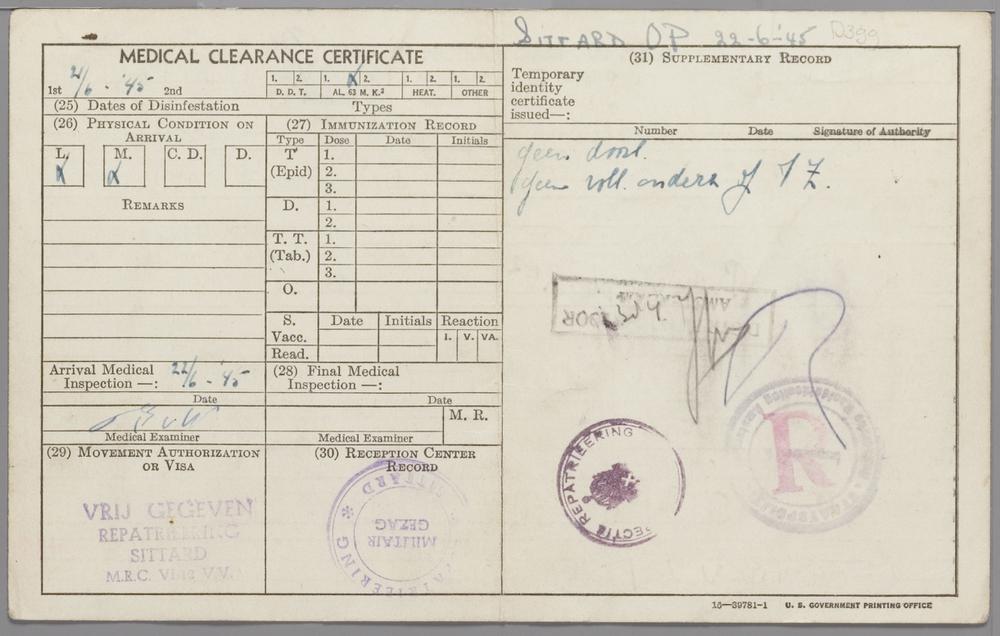 SITTARD OP 22-6-'45 D399
MEDICAL CLEARANCE CERTIFICATE
21/6 - '45
1st 2nd
1. 2. 1. 2. 1. 2. 1. 2.
D. D. T. AL. 63 M. K.² HEAT. OTHER
(25) Dates of Disinfestation Types
(26) PHYSICAL CONDITION ON ARRIVAL
L. M. C. D. D.
x x
REMARKS
(27) IMMUNIZATION RECORD
Type Dose Date Initials
T 1.
(Epid) 2.
3.
D. 1.
2.
T. T. 1.
(Tab.) 2.
3.
O.
S. Date Initials Reaction
Vacc. I. V. VA.
Read.
Arrival Medical
Inspection —: 22/6 - '45
Date
Medical Examiner
(28) Final Medical
Inspection —:
Date
M. R.
Medical Examiner
(29) MOVEMENT AUTHORIZATION
OR VISA
VRIJ GEGEVEN
REPATRIEERING
SITTARD
M.R.C.
(30) RECEPTION CENTER
RECORD
SITTARD
MILITAIR
GEZAG
(31) SUPPLEMENTARY RECORD
Temporary
identity
certificate
issued—:
Number Date Signature of Authority
geen
geen
DOOR
REPATRIEERING
R
16—39781-1 U. S. GOVERNMENT PRINTING OFFICE